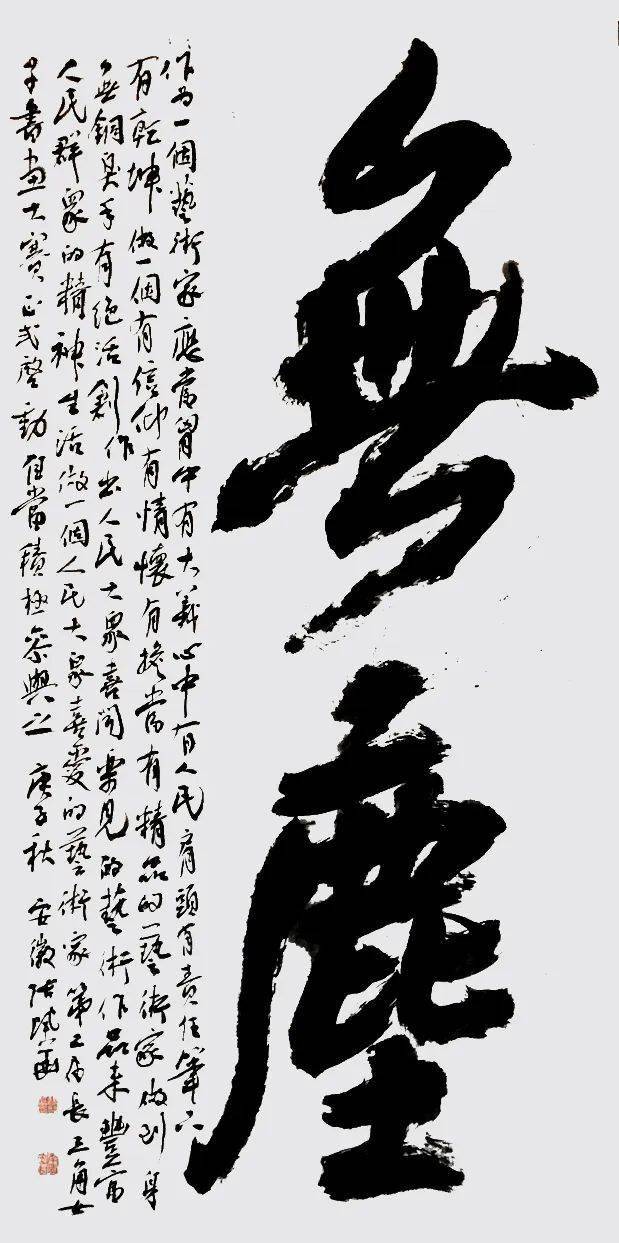 無塵
作为一個藝術家應當胸中有大義心中有人民肩頭有責任筆下
有乾坤做一個有信仰有情懷有擔當有精品的藝術家做到身
無銅臭手有絕活創作出人民大眾喜聞樂見的藝術作品来豐富
人民群眾的精神生活做一個人民大眾喜愛的藝術家第二届長三角女
子書画大賽正式啓動自當積極参與之 庚子秋 安徽